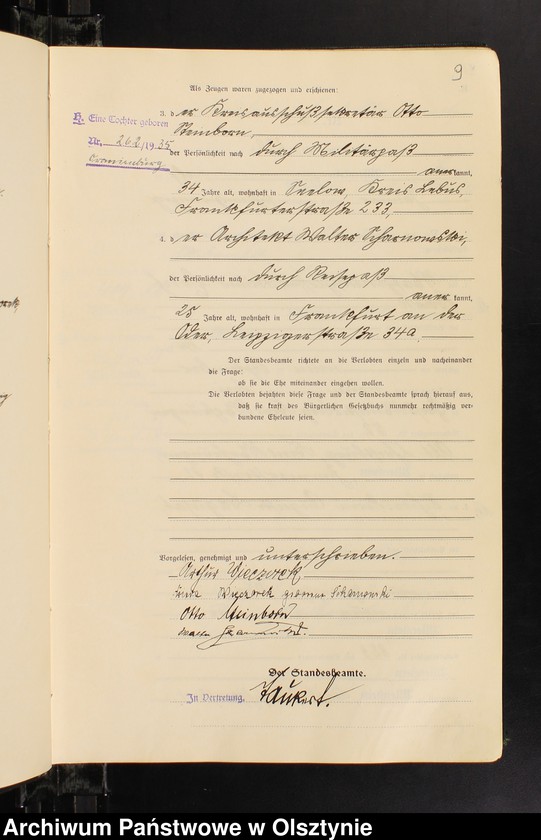 9
Als Zeugen waren zugezogen und erschienen:
K. Eine Tochter geboren
Nr. 262/1935
3. der Kreisausschußsekretär Otto
Steinborn,
der Persönlichkeit nach durch Militärpaß
anerkannt,
34 Jahre alt, wohnhaft in Seelow, Kreis Lebus,
Frankfurterstraße 233,
4. der Architekt Walter Scharnowski,
der Persönlichkeit nach durch Reisepaß
anerkannt,
25 Jahre alt, wohnhaft in Frankfurt an der
Oder, Leipzigerstraße 34a.
Der Standesbeamte richtete an die Verlobten einzeln und nacheinander
die Frage:
ob sie die Ehe miteinander eingehen wollen.
Die Verlobten bejahten diese Frage und der Standesbeamte sprach hierauf aus,
daß sie kraft des Bürgerlichen Gesetzbuchs nunmehr rechtmäßig ver-
bundene Eheleute seien.
Vorgelesen, genehmigt und unterschrieben.
Arthur Wieczorek
Wieczorek geborene Scharnowski
Otto Steinborn
Walter Scharnowski.
Der Standesbeamte.
In Vertretung.
Archiwum Państwowe w Olsztynie